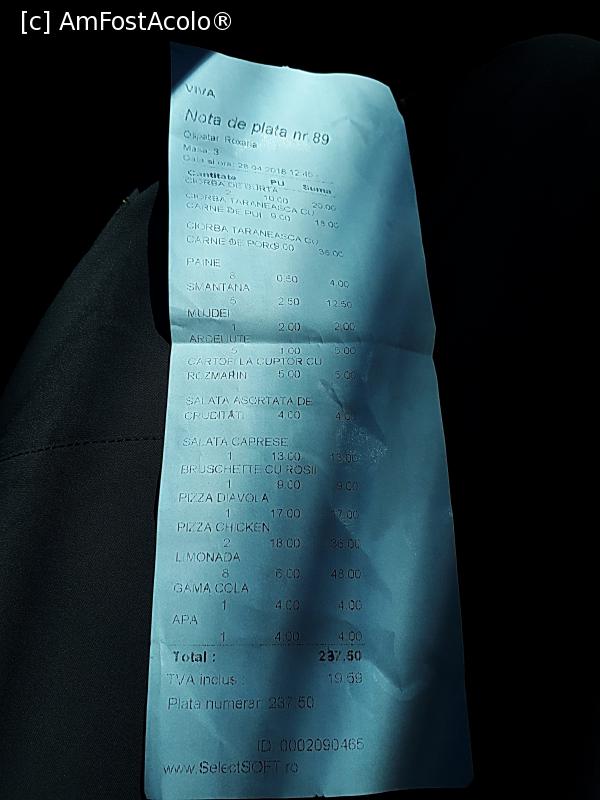 [c] AmFostAcolo®
VIVA
Nota de plata nr.89
Ospatar: Roxana
Masa: 3
Data si ora: 28.04.2018 12:45
Cantitate PU Suma
CIORBA DE BURTA
2 10.00 20.00
CIORBA TARANEASCA CU
CARNE DE PUI 9.00 18.00
CIORBA TARANEASCA CU
CARNE DE PORC 9.00 36.00
PAINE
8 0.50 4.00
SMANTANA
5 2.50 12.50
MUJDEI
1 2.00 2.00
ARDEI IUTE
5 1.00 5.00
CARTOFI LA CUPTOR CU
ROZMARIN 5.00 5.00
SALATA ASORTATA DE
CRUDITATI 4.00 4.00
SALATA CAPRESE
1 13.00 13.00
BRUSCHETTE CU ROSII
1 9.00 9.00
PIZZA DIAVOLA
1 17.00 17.00
PIZZA CHICKEN
2 18.00 36.00
LIMONADA
8 6.00 48.00
GAMA COLA
1 4.00 4.00
APA
1 4.00 4.00
Total : 237.50
TVA inclus : 19.59
Plata numerar: 237.50
ID: 0002090465
www.SelectSOFT.ro